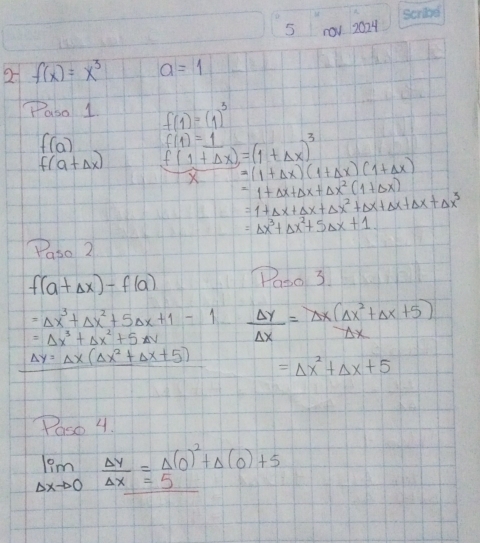 Scribe
5 nov 2024
2- f(x) = x³ a = 1
Paso 1.
f(1) = (1)³
f(a) f(1) = 1
f(a+Δx) f(1+Δx) = (1+Δx)³
x
= (1+Δx)(1+Δx)(1+Δx)
= 1+Δx+Δx+Δx²(1+Δx)
= 1+Δx+Δx+Δx²+Δx+Δx+Δx+Δx³
= Δx³+Δx²+5Δx+1.
Paso 2.
f(a+Δx)-f(a)
= Δx³+Δx²+5Δx+1 - 1
= Δx³+Δx²+5Δx
Δy = Δx(Δx²+Δx+5)
Paso 3.
Δy/Δx = Δx(Δx²+Δx+5)/Δx
= Δx²+Δx+5
Paso 4.
lim Δy/Δx = Δ(0)²+Δ(0)+5
Δx→0 = 5